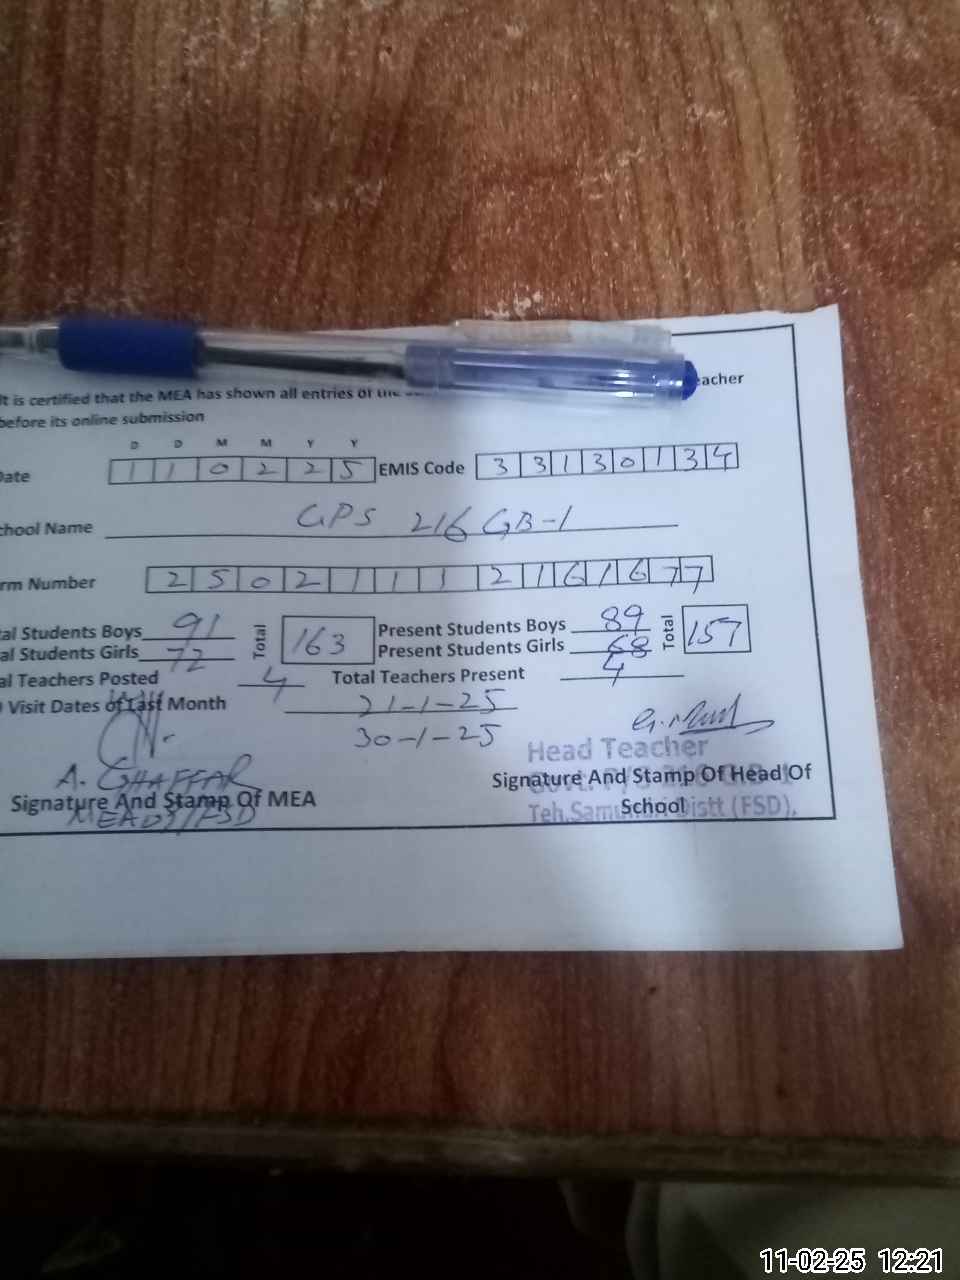 acher
It is certified that the MEA has shown all entries of the
before its online submission
D D M M Y Y
Date 1 1 0 2 2 5 EMIS Code 3 3 1 3 0 1 3 4
chool Name GPS 216 GB-1
rm Number 2 5 0 2 1 1 1 2 1 6 1 6 7 7
al Students Boys 91 Total 163 Present Students Boys 89 Total 157
al Students Girls 72 Present Students Girls 68
al Teachers Posted 4 Total Teachers Present 4
Visit Dates of Last Month 21-1-25
30-1-25
A. GHAFFAR
Signature And Stamp Of MEA
Head Teacher
Signature And Stamp Of Head Of
School
Teh. Distt (FSD).
11-02-25 12:21